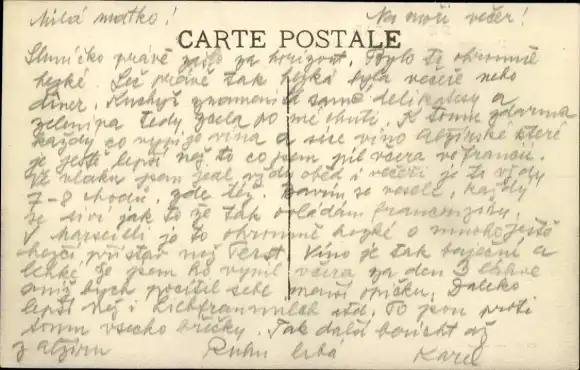 Milá matko! Na moři večer!
CARTE POSTALE
Sluníčko právě zašlo za horizont. Bylo to ohromně
hezké. Leč právě tak hezká byla večeře nebo
díner. Kuchyň znamenitá samé delikatesy a
zelenina tedy zcela po mé chuti. K tomu zdarma
každý co vypije vína a sice víno Alžírské které
je ještě lepší než to co jsem pil včera ve Francii.
Ve vlaku jsem jedl vždy oběd i večeři je to vždy
7-8 chodů, zde též. Bavím se vesele, každý
se diví jak to že tak ovládám francouzštinu.
V Marseilli je to ohromně hezké o mnoho ještě
hezčí přístav než Terst. Víno je tak báječné a
lehké že jsem ho vypil včera za den 3 láhve
aniž bych pocítil sebe menší opičku. Daleko
lepší než i Liebfraumilch atd. To jsou proti
tomu všecko břečky. Tak další až
z Alžíru Ruku líbá Karel